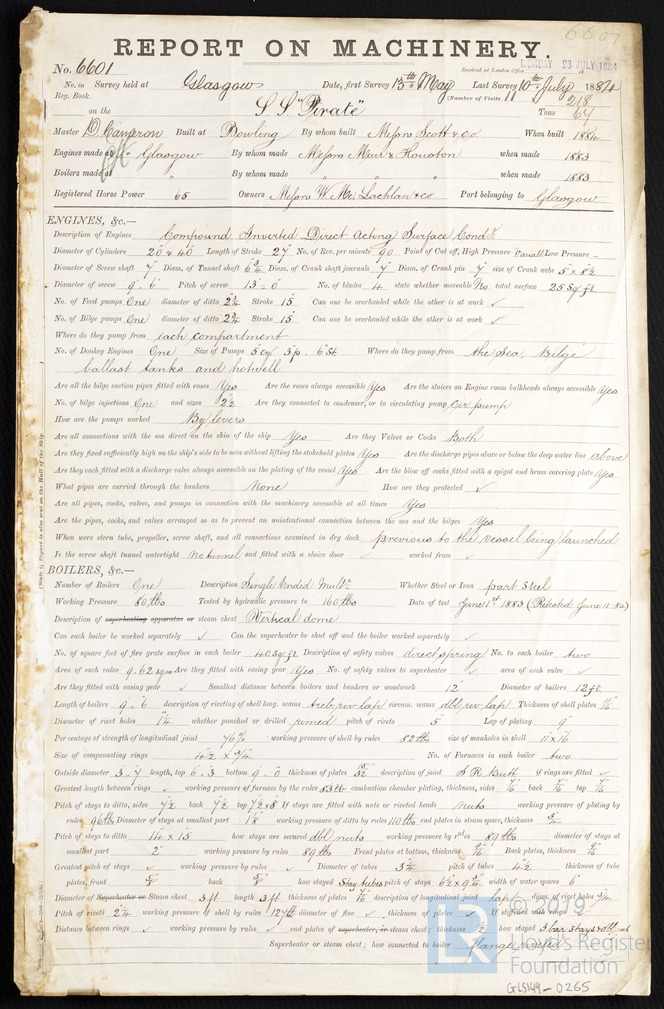 6601
REPORT ON MACHINERY.
No. 6601
Received at London Office MONDAY 23 JULY 1884
No. in Survey held at Glasgow Date, first Survey 13th May Last Survey 10th July 1884
Reg. Book. (Number of Visits 11
on the S.S. "Pirate" Tons 218 64
Master D. Cameron Built at Bowling By whom built Messrs Scott & Co When built 1884
Engines made at Glasgow By whom made Messrs Muir & Houston when made 1883
Boilers made at " By whom made " " when made 1883
Registered Horse Power 65 Owners Messrs W. McLachlan & Co Port belonging to Glasgow
ENGINES, &c.—
Description of Engines Compound Inverted Direct Acting Surface Condr.
Diameter of Cylinders 20 & 40 Length of Stroke 27 No. of Rev. per minute 90 Point of Cut off, High Pressure Low Pressure
Diameter of Screw shaft 7 Diam. of Tunnel shaft 6 3/4 Diam. of Crank shaft journals 7 Diam. of Crank pin 7 size of Crank webs 5 x 8 1/2
Diameter of screw 9.6 Pitch of screw 13.0 No. of blades 4 state whether moveable No total surface 25 Sq ft
No. of Feed pumps One diameter of ditto 2 3/4 Stroke 15 Can one be overhauled while the other is at work ✓
No. of Bilge pumps One diameter of ditto 2 3/4 Stroke 15 Can one be overhauled while the other is at work ✓
Where do they pump from each compartment
No. of Donkey Engines One Size of Pumps 5 cy 3 p. 6 St Where do they pump from the Sea, Bilge
ballast tanks and hotwell
Are all the bilge suction pipes fitted with roses Yes Are the roses always accessible Yes Are the sluices on Engine room bulkheads always accessible Yes
No. of bilge injections One and sizes 2 1/2 Are they connected to condenser, or to circulating pump Cir pump
How are the pumps worked By levers
Are all connections with the sea direct on the skin of the ship Yes Are they Valves or Cocks Both
Are they fixed sufficiently high on the ship's side to be seen without lifting the stokehold plates Yes Are the discharge pipes above or below the deep water line above
Are they each fitted with a discharge valve always accessible on the plating of the vessel Yes Are the blow off cocks fitted with a spigot and brass covering plate Yes
What pipes are carried through the bunkers None How are they protected ✓
Are all pipes, cocks, valves, and pumps in connection with the machinery accessible at all times Yes
Are the pipes, cocks, and valves arranged so as to prevent an unintentional connection between the sea and the bilges Yes
When were stern tube, propeller, screw shaft, and all connections examined in dry dock previous to the vessel being launched
Is the screw shaft tunnel watertight No tunnel and fitted with a sluice door ✓ worked from ✓
BOILERS, &c.—
Number of Boilers One Description Single Ended Multr. Whether Steel or Iron part Steel
Working Pressure 80 lbs Tested by hydraulic pressure to 160 lbs Date of test June 1st 1883 (Retested June 11-84)
Description of superheating apparatus or steam chest Vertical dome
Can each boiler be worked separately ✓ Can the superheater be shut off and the boiler worked separately ✓
No. of square feet of fire grate surface in each boiler 40 Sq ft Description of safety valves direct spring No. to each boiler two
Area of each valve 9.62 Are they fitted with easing gear Yes No. of safety valves to superheater ✓ area of each valve ✓
Are they fitted with easing gear ✓ Smallest distance between boilers and bunkers or woodwork 12 Diameter of boilers 12 ft
Length of boilers 9.6 description of riveting of shell long. seams treb riv lap circum. seams dbl riv lap Thickness of shell plates
Diameter of rivet holes whether punched or drilled rimed pitch of rivets 5 Lap of plating 9
Per centage of strength of longitudinal joint 76% working pressure of shell by rules 82 lbs size of manholes in shell 11 x 16
Size of compensating rings No. of Furnaces in each boiler two
Outside diameter 3.7 length, top 6.3 bottom 9.0 thickness of plates description of joint S R Butt if rings are fitted ✓
Greatest length between rings ✓ working pressure of furnace by the rules 83 lbs combustion chamber plating, thickness, sides back top
Pitch of stays to ditto, sides 7 1/2 back 7 1/2 top 7 1/2 x 8 If stays are fitted with nuts or riveted heads nuts working pressure of plating by
rules 96 lbs Diameter of stays at smallest part working pressure of ditto by rules 110 lbs end plates in steam space, thickness
Pitch of stays to ditto 14 x 15 how stays are secured dbl nuts working pressure by rules 89 lbs diameter of stays at
smallest part 2" working pressure by rules 89 lbs Front plates at bottom, thickness Back plates, thickness
Greatest pitch of stays ✓ working pressure by rules ✓ Diameter of tubes 3 1/4 pitch of tubes 4 1/2 thickness of tube
plates, front back how stayed Stay tubes pitch of stays width of water spaces 6
Diameter of Superheater or Steam chest 3 ft length 3 ft thickness of plates description of longitudinal joint lap diam. of rivet holes 3/4
Pitch of rivets 2 1/4 working pressure of shell by rules 127 lbs diameter of flue ✓ thickness of plates ✓ If stiffened with rings
Distance between rings ✓ working pressure by rules ✓ end plates of superheater, or steam chest; thickness how stayed 3 bar stays & dbl nuts
Superheater or steam chest; how connected to boiler flange riveted
(Made is Report is also sent on the Hull of the Ship.
LR © 2019
Lloyd's Register
Foundation
GLS144-0265